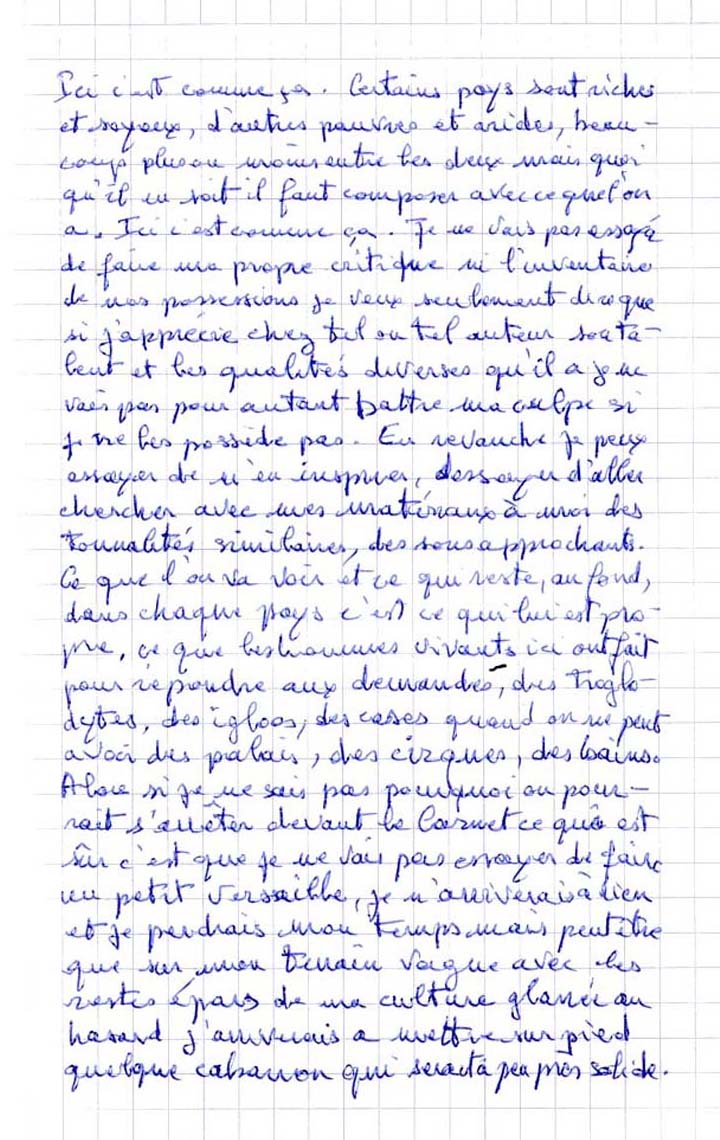 Ici c'est comme ça. Certains pays sont riches
et soyeux, d'autres pauvres et arides, beau-
coup plus ou moins entre les deux mais quoi
qu'il en soit il faut composer avec ce que l'on
a. Ici c'est comme ça. Je ne vais pas essayer
de faire ma propre critique ni l'inventaire
de mes possessions je veux seulement dire que
si j'apprécie chez tel ou tel auteur son ta-
lent et les qualités diverses qu'il a je ne
vais pas pour autant battre ma culpe si
je ne les possède pas. En revanche je peux
essayer de m'en inspirer, d'essayer d'aller
chercher avec mes matériaux à moi des
tonnalités similaires, des sons approchants.
Ce que l'on va voir et ce qui reste, au fond,
dans chaque pays c'est ce qui lui est pro-
pre, ce que les hommes vivants ici ont fait
pour répondre aux demandes, des troglo-
dytes, des igloos, des cases quand on ne peut
avoir des palais, des cirques, des bains.
Alors si je ne sais pas pourquoi on pour-
rait s'arrêter devant le Carnet ce qui est
sûr c'est que je ne vais pas essayer de faire
un petit Versaille, je n'arriverais à rien
et je perdrais mon temps mais peut être
que sur mon terrain vague avec les
restes épars de ma culture glanée au
hasard j'arriverais a mettre sur pied
quelque cabanon qui serait à peu près solide.